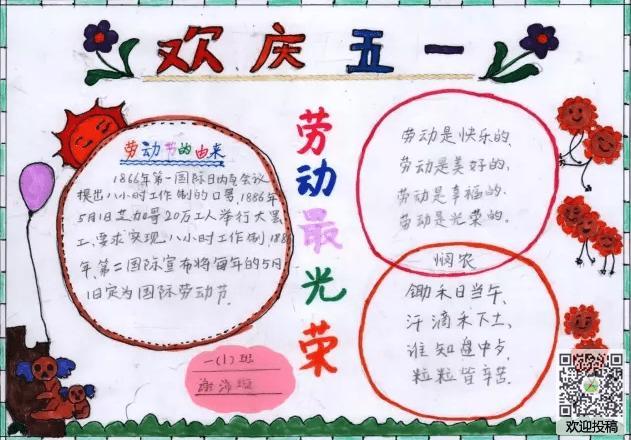 欢庆五一
劳动节的由来
1866年第一国际日内瓦会议
提出八小时工作制的口号,1886年
5月1日芝加哥20万工人举行大罢
工,要求实现八小时工作制,188
年,第二国际宣布将每年的5月
1日定为国际劳动节.
一(1)班
劳动最光荣
劳动是快乐的,
劳动是美好的,
劳动是幸福的.
劳动是光荣的。
悯农
锄禾日当午,
汗滴禾下土,
谁知盘中
粒粒皆辛苦.
欢迎投稿